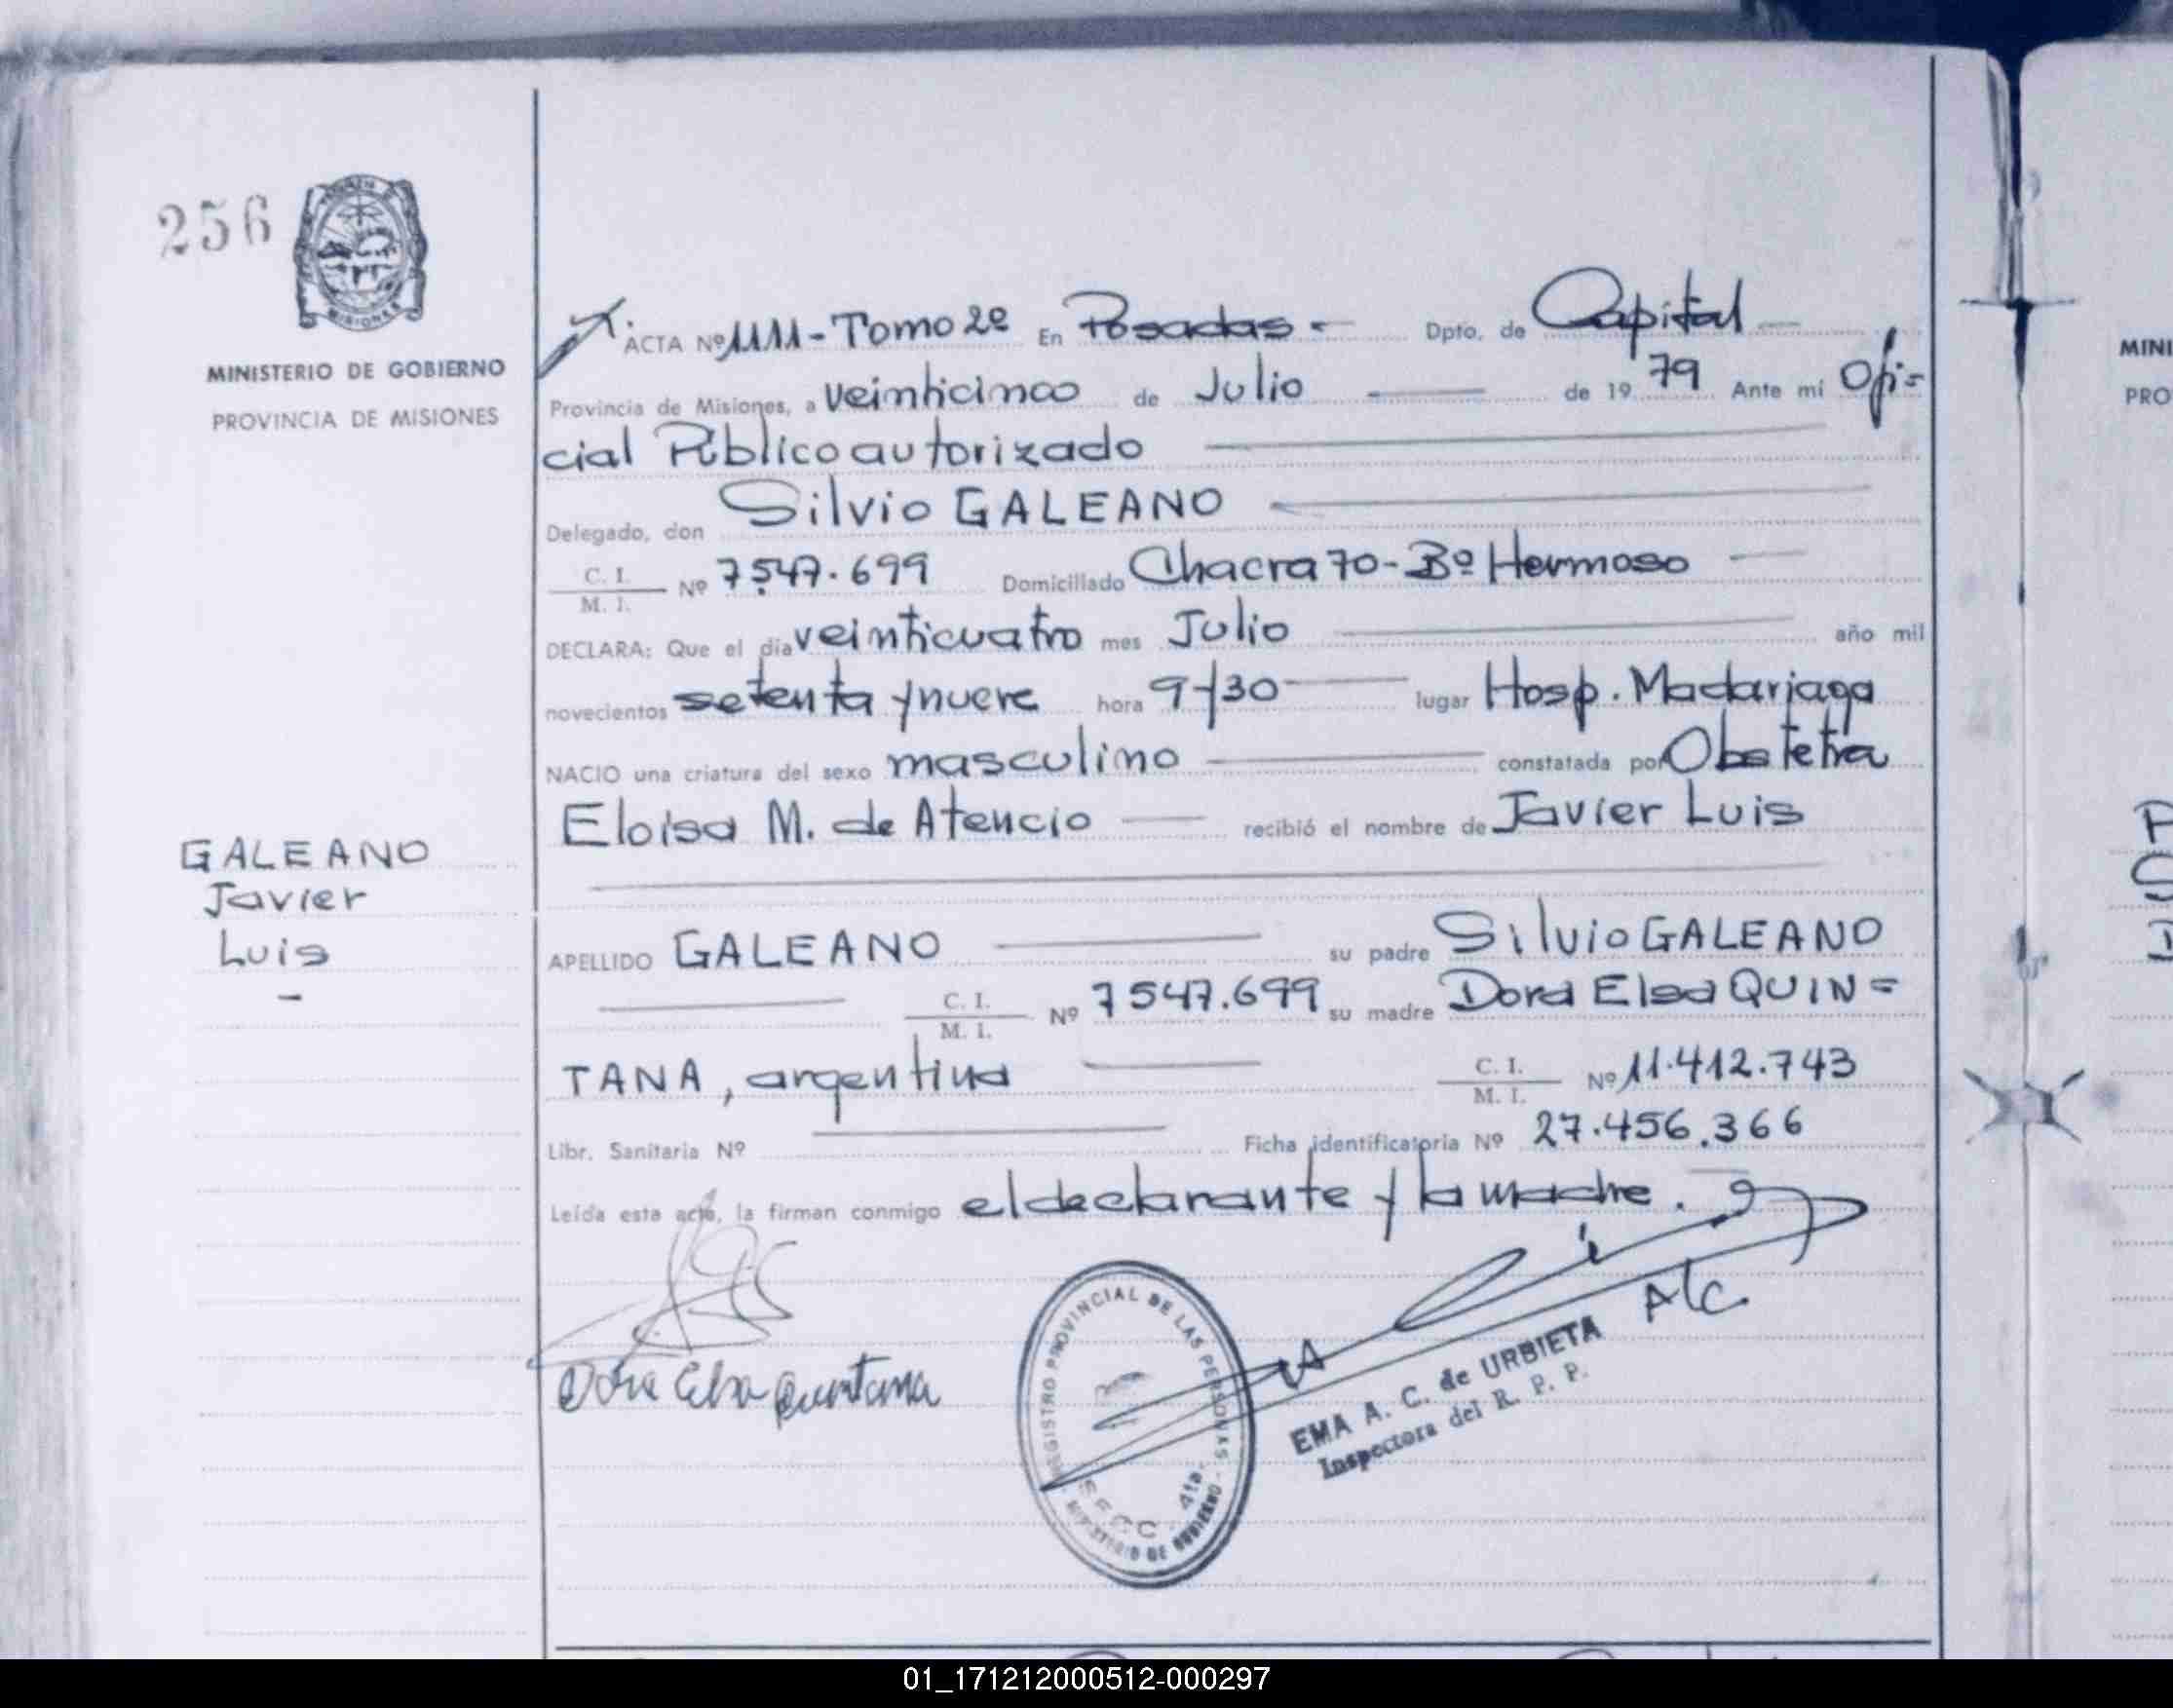 256
MISIONES
MINISTERIO DE GOBIERNO
PROVINCIA DE MISIONES
GALEANO
Javier
Luis
-
ACTA Nº 1111 - Tomo 2º En Posadas - Dpto. de Capital
Provincia de Misiones, a veinticinco de Julio de 19 79 Ante mi Ofi=
cial Público autorizado
Delegado, don Silvio GALEANO
C. I. / M. I. Nº 7547.699 Domiciliado Chacra 70 - Bº Hermoso
DECLARA: Que el día veinticuatro mes Julio año mil
novecientos setenta y nueve hora 9/30 lugar Hosp. Madariaga
NACIO una criatura del sexo masculino constatada por Obstetra
Eloisa M. de Atencio recibió el nombre de Javier Luis
APELLIDO GALEANO su padre Silvio GALEANO
C. I. / M. I. Nº 7547.699 su madre Dora Elsa QUIN=
TANA, argentina C. I. / M. I. Nº 11.412.743
Libr. Sanitaria Nº Ficha identificatoria Nº 27.456.366
Leída esta acta, la firman conmigo el declarante y la madre.
Dora Elsa Quintana
REGISTRO PROVINCIAL DE LAS PERSONAS
SECC. 4ta.
MINISTERIO DE GOBIERNO
A/C.
EMA A. C. de URBIETA
Inspectora del R. P. P.
MINI
PRO
01_171212000512-000297